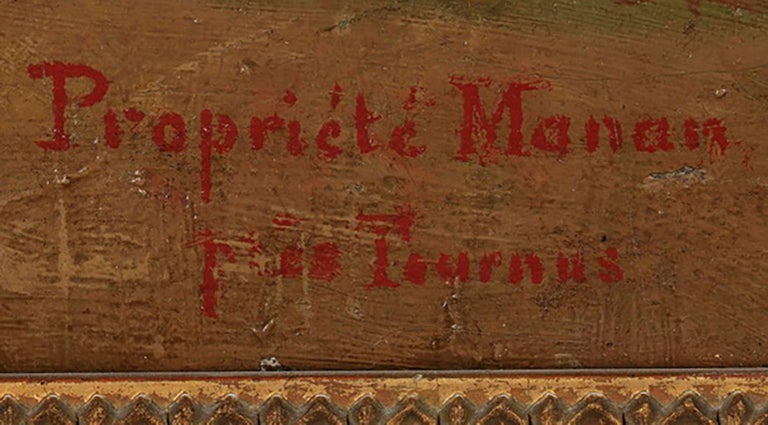 Propriété Manan
pres Tournus